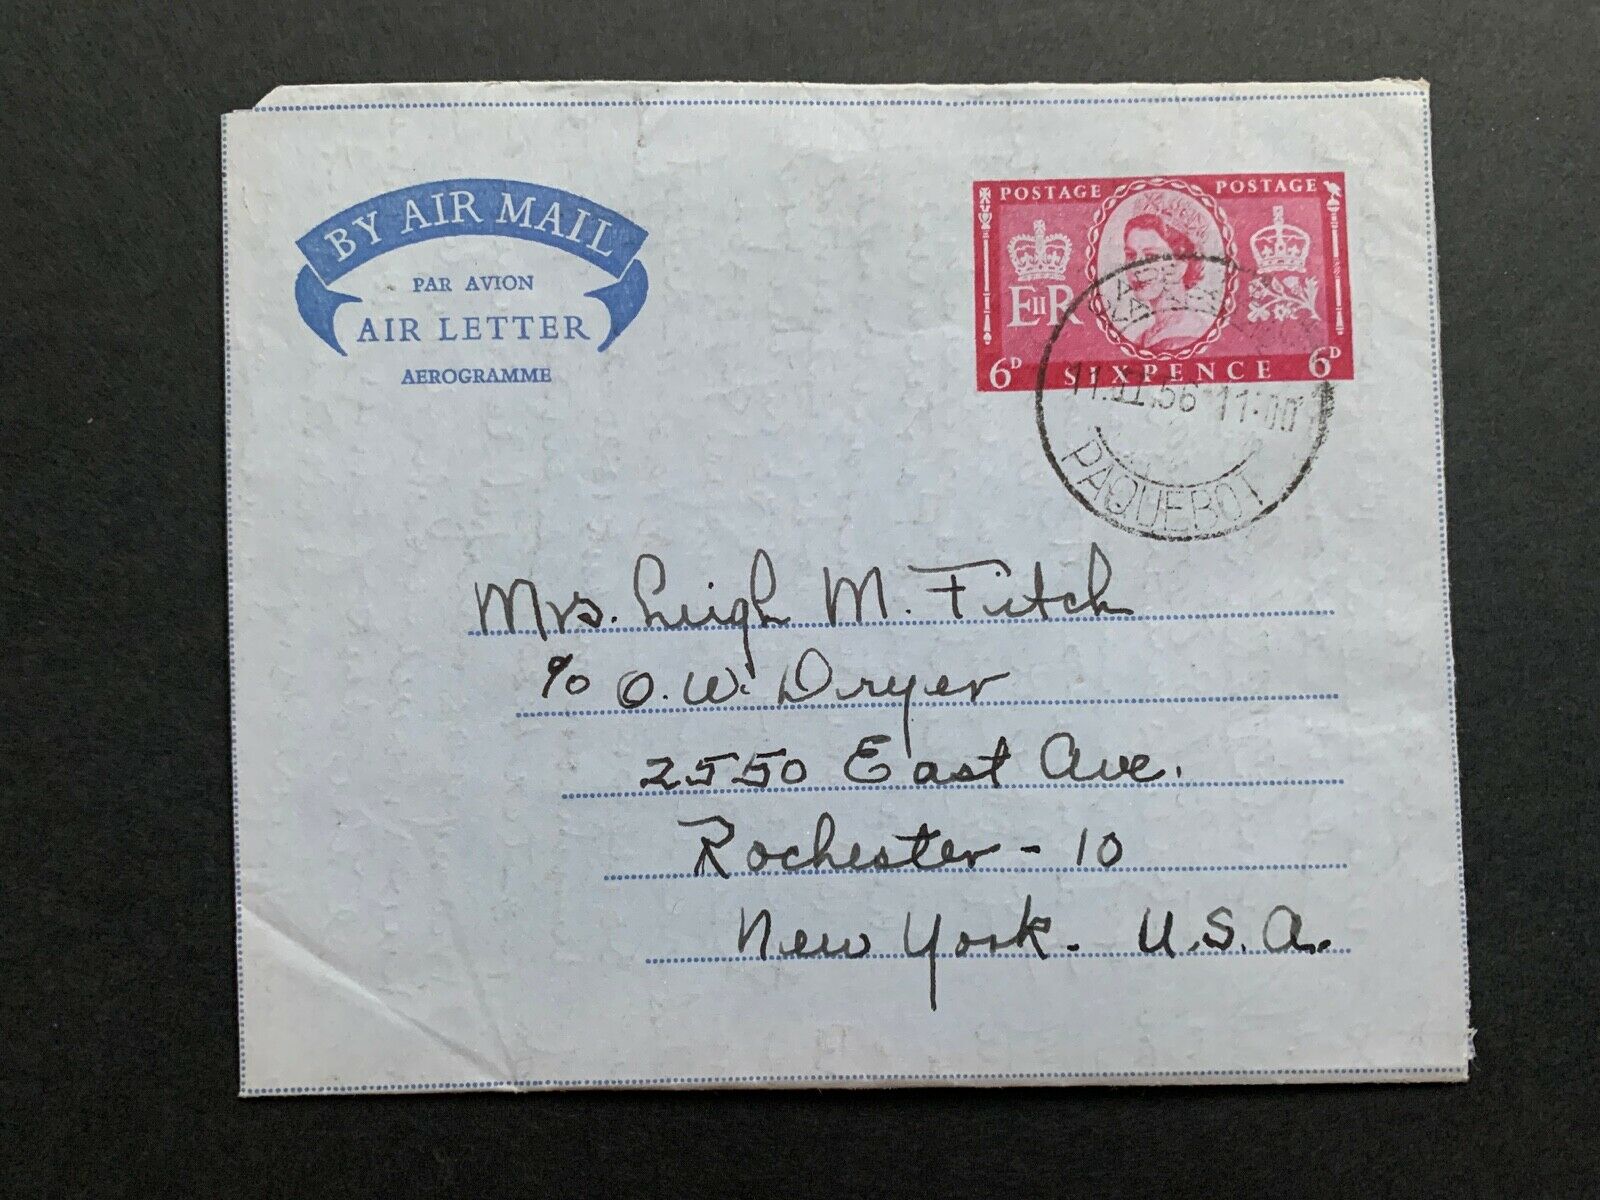 BY AIR MAIL
PAR AVION
AIR LETTER
AEROGRAMME
POSTAGE POSTAGE
EIIR
6D SIXPENCE 6D
11.II.56 11:00
PAQUEBOT
Mrs. Leigh M. Fitch
c/o O. W. Dryer
2550 East Ave.
Rochester - 10
New York - U.S.A.